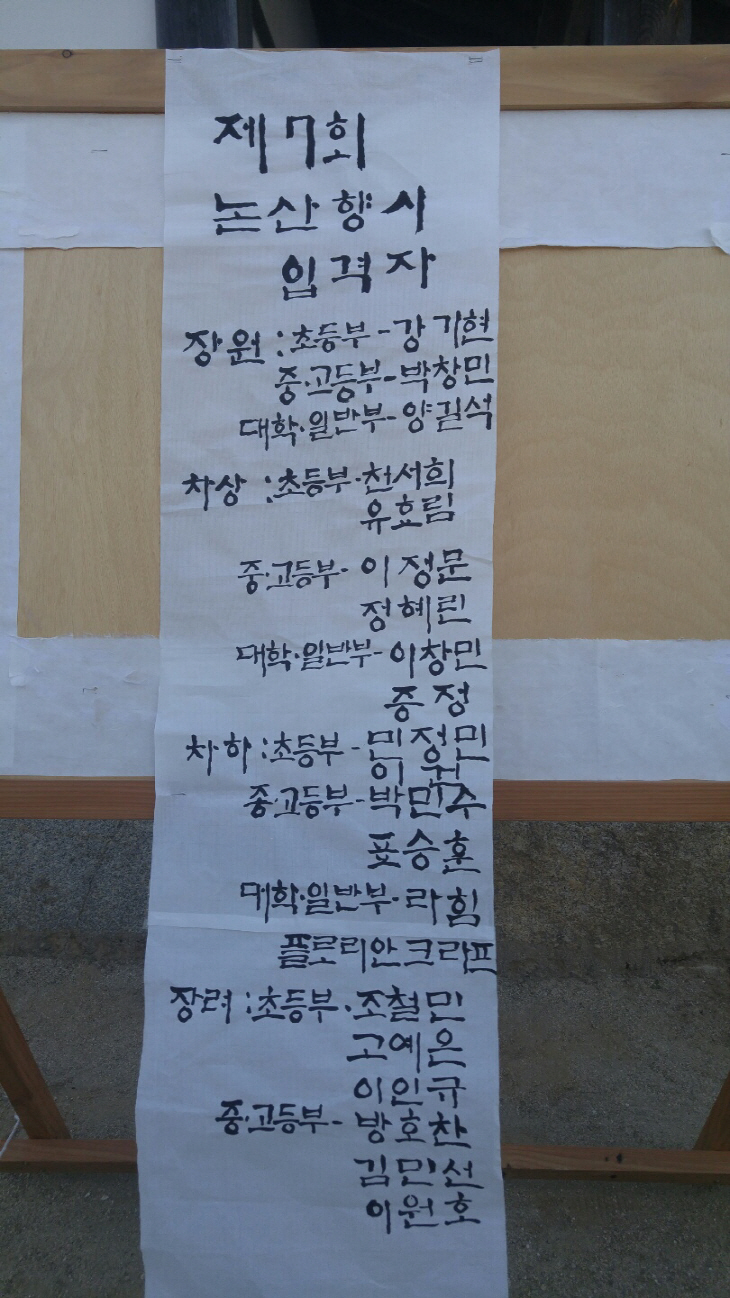 제7회
논산향시
입격자
장원 : 초등부 - 강기현
중·고등부 - 박창민
대학·일반부 - 양길석
차상 : 초등부 · 천서희
유효림
중·고등부 - 이정문
정혜린
대학·일반부 - 이창민
증정
차하 : 초등부 - 민정민
이
중·고등부 - 박민수
표승훈
대학·일반부 · 라힘
플로리안크라프
장려 : 초등부 · 조철민
고예은
이인규
중·고등부 - 방호찬
김민선
이원호